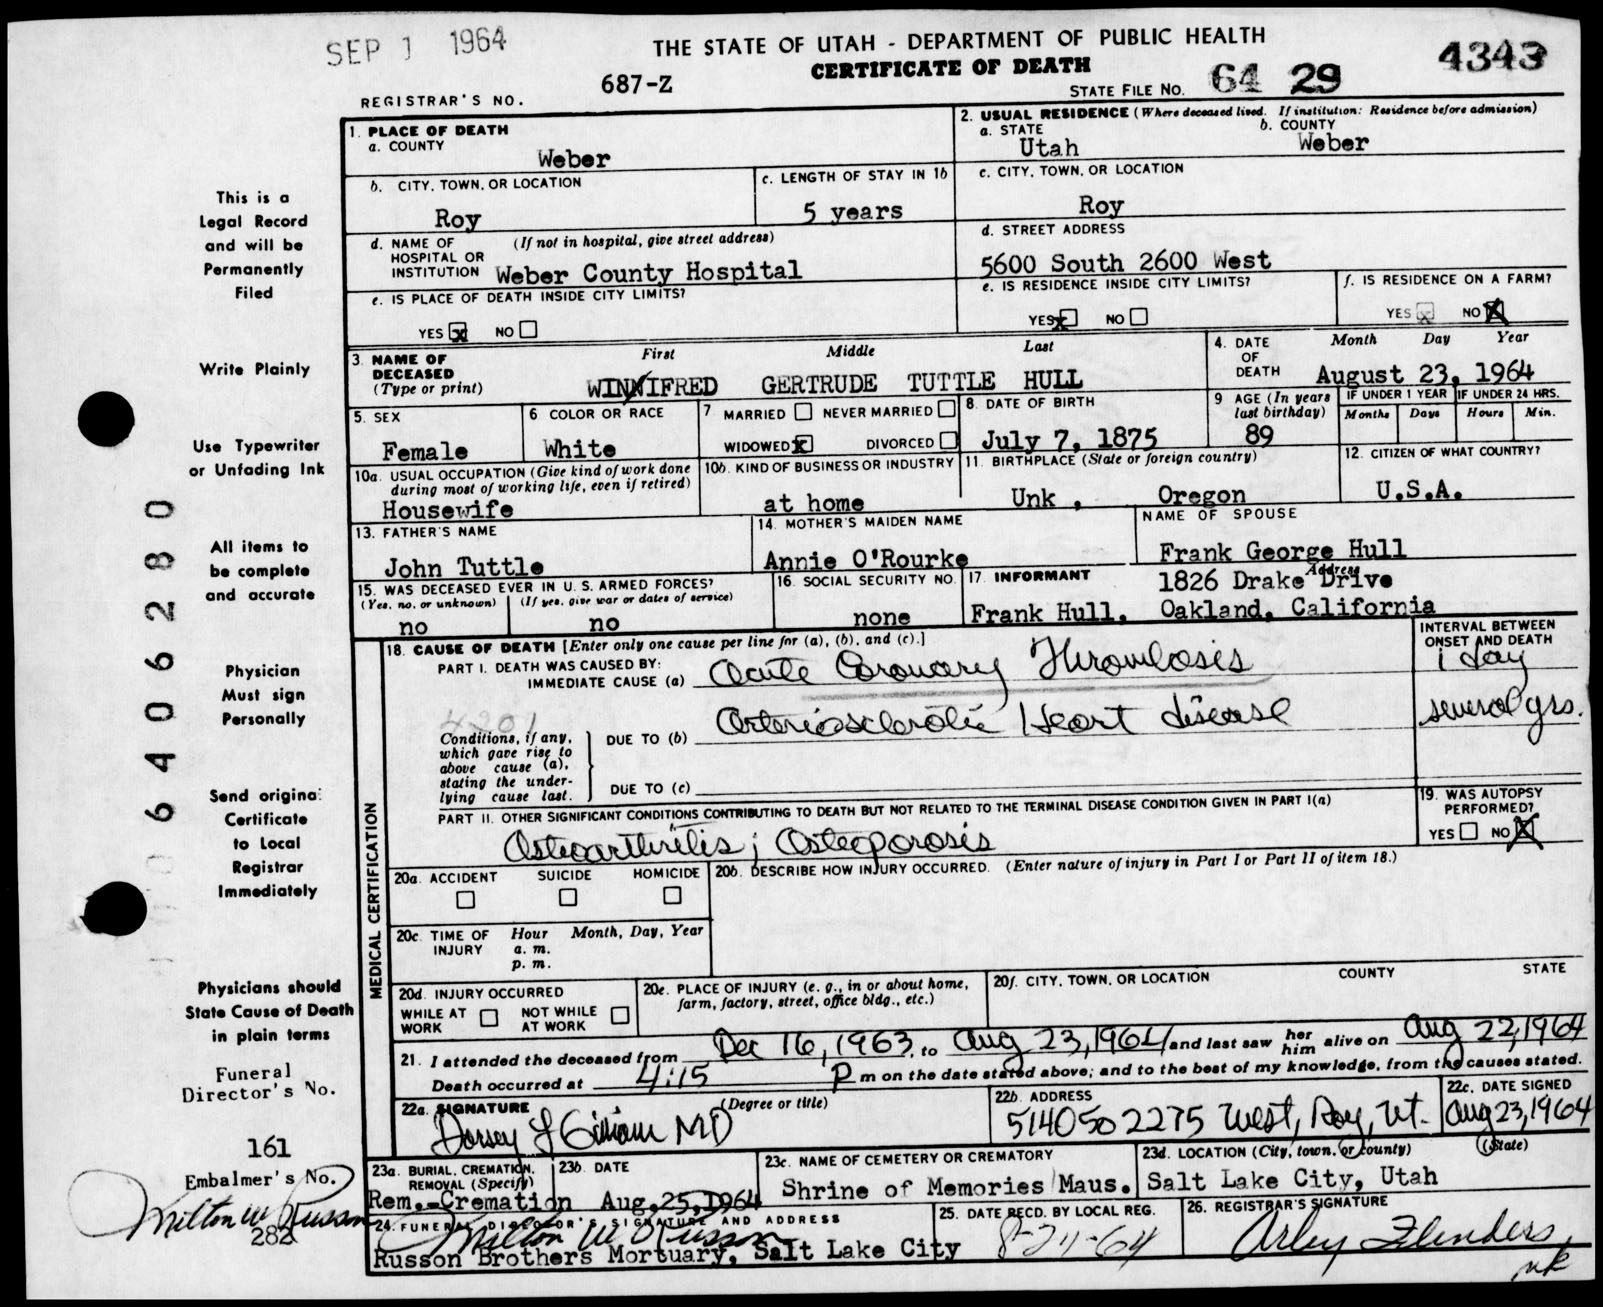 SEP 1 1964
THE STATE OF UTAH - DEPARTMENT OF PUBLIC HEALTH
CERTIFICATE OF DEATH
4343
REGISTRAR'S NO. 687-Z
STATE FILE NO. 64 29
1. PLACE OF DEATH
a. COUNTY
Weber
2. USUAL RESIDENCE (Where deceased lived. If institution: Residence before admission)
a. STATE
Utah
b. COUNTY
Weber
b. CITY, TOWN, OR LOCATION
Roy
c. LENGTH OF STAY IN 1b
5 years
c. CITY, TOWN, OR LOCATION
Roy
d. NAME OF HOSPITAL OR INSTITUTION (If not in hospital, give street address)
Weber County Hospital
d. STREET ADDRESS
5600 South 2600 West
e. IS PLACE OF DEATH INSIDE CITY LIMITS?
YES x NO
e. IS RESIDENCE INSIDE CITY LIMITS?
YES x NO
f. IS RESIDENCE ON A FARM?
YES x NO X
3. NAME OF DECEASED (Type or print)
First Middle Last
WINNIFRED GERTRUDE TUTTLE HULL
4. DATE OF DEATH
Month Day Year
August 23, 1964
5. SEX
Female
6 COLOR OR RACE
White
7 MARRIED NEVER MARRIED
WIDOWED x DIVORCED
8. DATE OF BIRTH
July 7, 1875
9 AGE (In years last birthday)
89
IF UNDER 1 YEAR
Months Days
IF UNDER 24 HRS.
Hours Min.
10a. USUAL OCCUPATION (Give kind of work done during most of working life, even if retired)
Housewife
10b. KIND OF BUSINESS OR INDUSTRY
at home
11. BIRTHPLACE (State or foreign country)
Unk , Oregon
12. CITIZEN OF WHAT COUNTRY?
U.S.A.
13. FATHER'S NAME
John Tuttle
14. MOTHER'S MAIDEN NAME
Annie O'Rourke
NAME OF SPOUSE
Frank George Hull
15. WAS DECEASED EVER IN U. S. ARMED FORCES?
(Yes, no, or unknown) (If yes, give war or dates of service)
no no
16. SOCIAL SECURITY NO.
none
17. INFORMANT Address
1826 Drake Drive
Frank Hull, Oakland, California
MEDICAL CERTIFICATION
18. CAUSE OF DEATH [Enter only one cause per line for (a), (b), and (c).]
INTERVAL BETWEEN ONSET AND DEATH
PART I. DEATH WAS CAUSED BY:
IMMEDIATE CAUSE (a) Acute Coronary Thrombosis
1 day
4201
Conditions, if any, which gave rise to above cause (a), stating the underlying cause last.
DUE TO (b) Arteriosclerotic Heart disease
several yrs.
DUE TO (c)
PART II. OTHER SIGNIFICANT CONDITIONS CONTRIBUTING TO DEATH BUT NOT RELATED TO THE TERMINAL DISEASE CONDITION GIVEN IN PART I(a)
Osteoarthritis; Osteoporosis
19. WAS AUTOPSY PERFORMED?
YES NO X
20a. ACCIDENT SUICIDE HOMICIDE
20b. DESCRIBE HOW INJURY OCCURRED. (Enter nature of injury in Part I or Part II of item 18.)
20c. TIME OF INJURY Hour Month, Day, Year
a. m.
p. m.
20d. INJURY OCCURRED
WHILE AT WORK NOT WHILE AT WORK
20e. PLACE OF INJURY (e. g., in or about home, farm, factory, street, office bldg., etc.)
20f. CITY, TOWN, OR LOCATION COUNTY STATE
21. I attended the deceased from Dec 16, 1963, to Aug 23, 1964 and last saw her him alive on Aug 22, 1964
Death occurred at 4:15 P m on the date stated above; and to the best of my knowledge, from the causes stated.
22a. SIGNATURE (Degree or title)
Dorsey MD
22b. ADDRESS
5140 So 2275 West, Roy, Ut.
22c. DATE SIGNED
Aug 23, 1964
23a. BURIAL, CREMATION, REMOVAL (Specify)
Rem.-Cremation
23b. DATE
Aug. 25, 1964
23c. NAME OF CEMETERY OR CREMATORY
Shrine of Memories Maus.
23d. LOCATION (City, town, or county) (State)
Salt Lake City, Utah
24. FUNERAL DIRECTOR'S SIGNATURE AND ADDRESS
Milton W Russon
Russon Brothers Mortuary, Salt Lake City
25. DATE RECD. BY LOCAL REG.
26. REGISTRAR'S SIGNATURE
Arley Flinders
nk
This is a
Legal Record
and will be
Permanently
Filed
Write Plainly
Use Typewriter
or Unfading Ink
All items to
be complete
and accurate
Physician
Must sign
Personally
Send original
Certificate
to Local
Registrar
Immediately
Physicians should
State Cause of Death
in plain terms
Funeral
Director's No.
161
Embalmer's No.
Milton W Russon
282
6406280